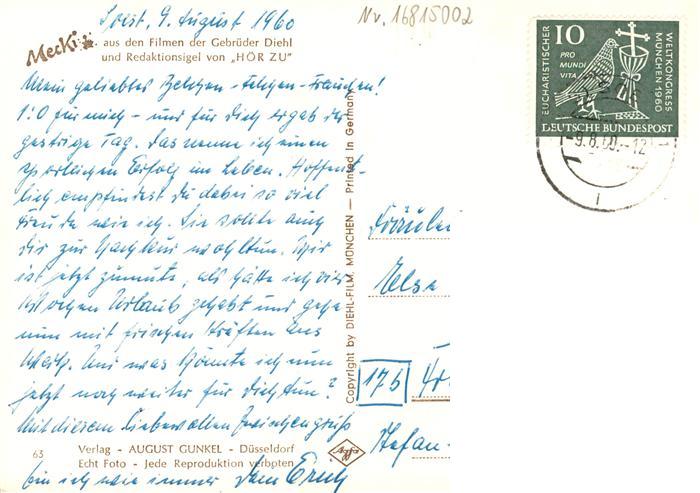 Soest, 9. August 1960
Nv. 16815002
Mecki
aus den Filmen der Gebrüder Diehl
und Redaktionsigel von „HÖR ZU"
Mein geliebtes
1:0 für mich – und für Dich ergab der
gestrige Tag. Das nenne ich einen
Erfolg im Leben. Hoffent-
lich empfindest Du dabei so viel
Freude wie ich. Sie sollte auch
Dir zur Nachkur wohltun. Mir
ist jetzt zumute, als hätte ich vier
Wochen Urlaub gehabt und gehe
nun mit frischen Kräften ans
Werk. Und was könnte ich nun
jetzt noch weiter für Dich tun?
Mit diesem liebevollen Zwischengruß
bin ich wie immer Dein Erich
63
Verlag - AUGUST GUNKEL - Düsseldorf
Echt Foto - Jede Reproduktion verboten
Copyright by DIEHL-FILM, MÜNCHEN — Printed in Germany
Agfa
EUCHARISTISCHER
WELTKONGRESS
MÜNCHEN 1960
10
PRO
MUNDI
VITA
DEUTSCHE BUNDESPOST
-9.8.60.-12
Fräulein
Else
17b
Stefan-